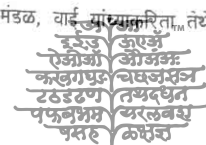 मंडळ, वाई यांच्याकरिता, तेथे
इईउ ऊएअॅ
ऐओऔ ऑअंअः
कखगघङ चछजझञ
टठडढण तथदधन
पफबभम यरलवश
षसह ळक्षज्ञ